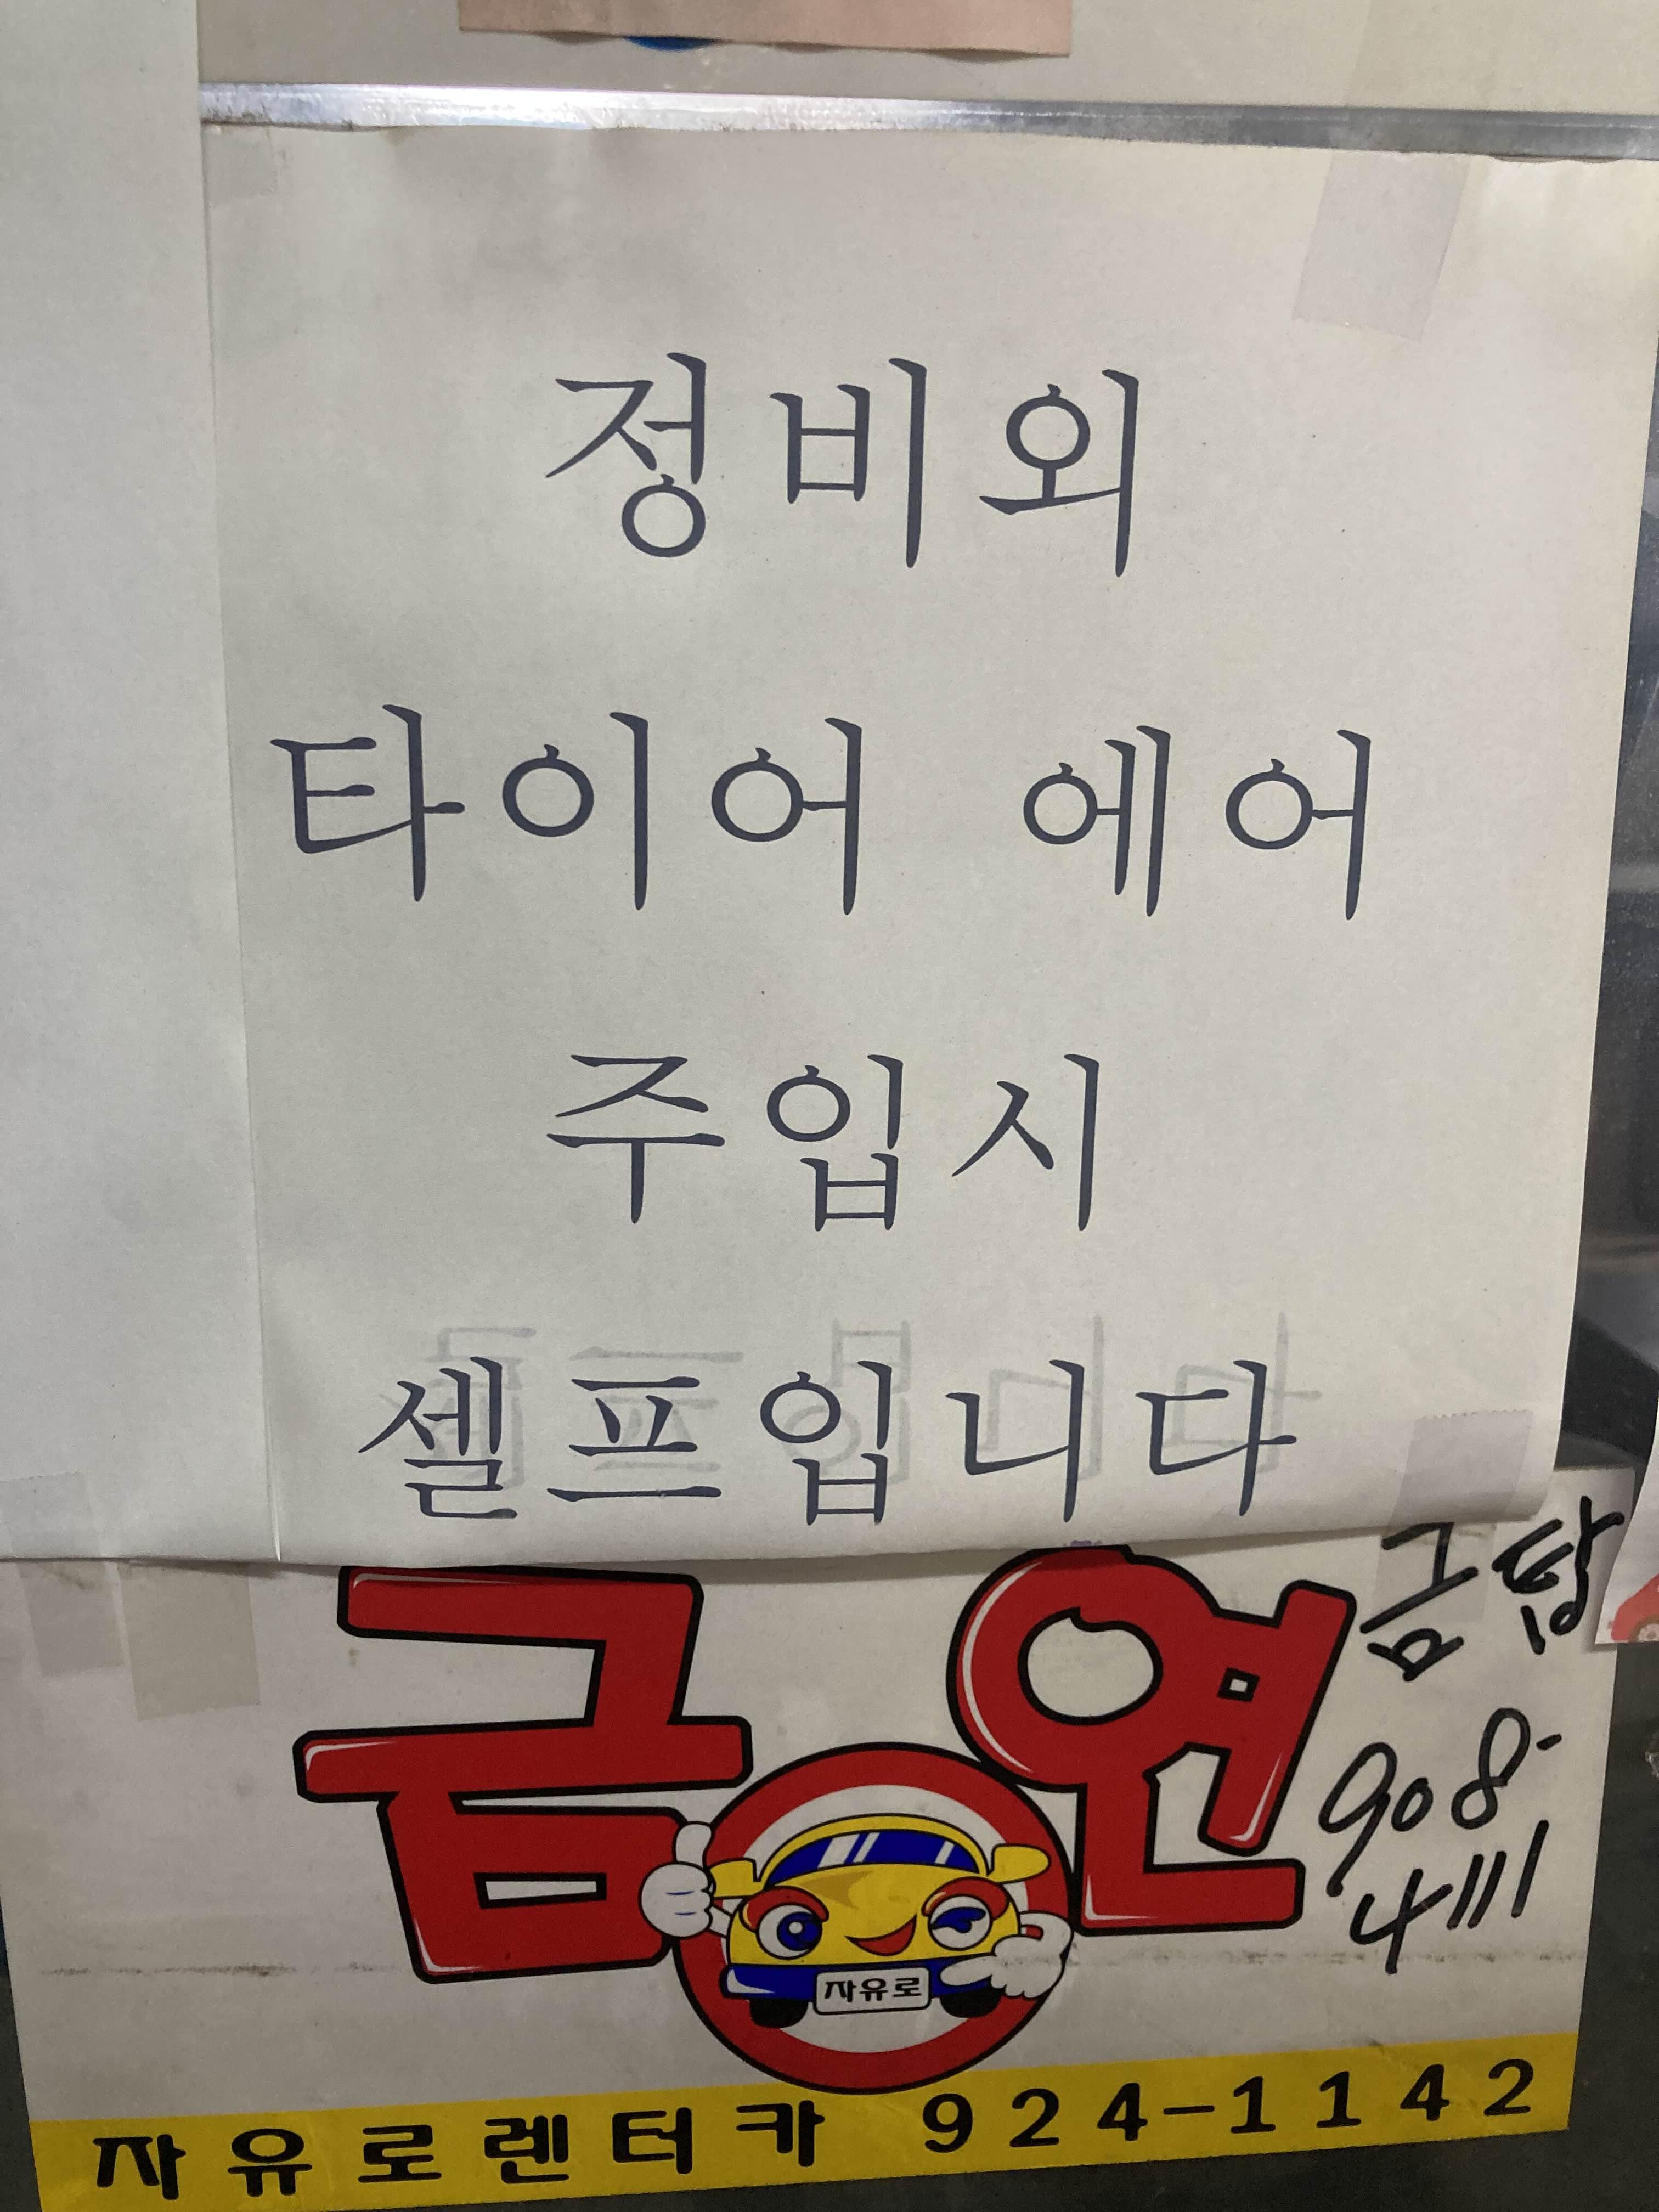 정비외
타이어 에어
주입시
셀프입니다
금연
금탑
908-
4111
자유로
자유로렌터카 924-1142